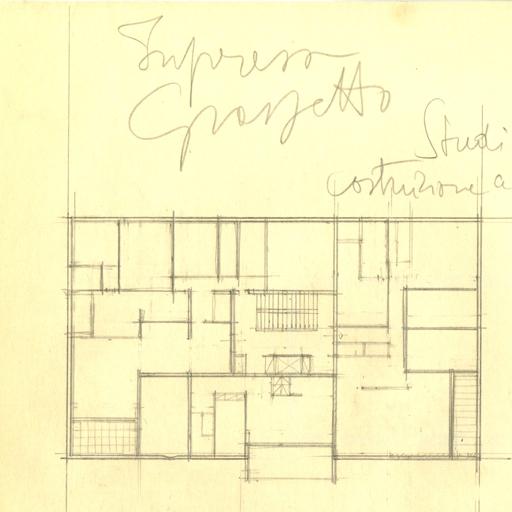 Impresa
Grossetto
Studi
costruzione a